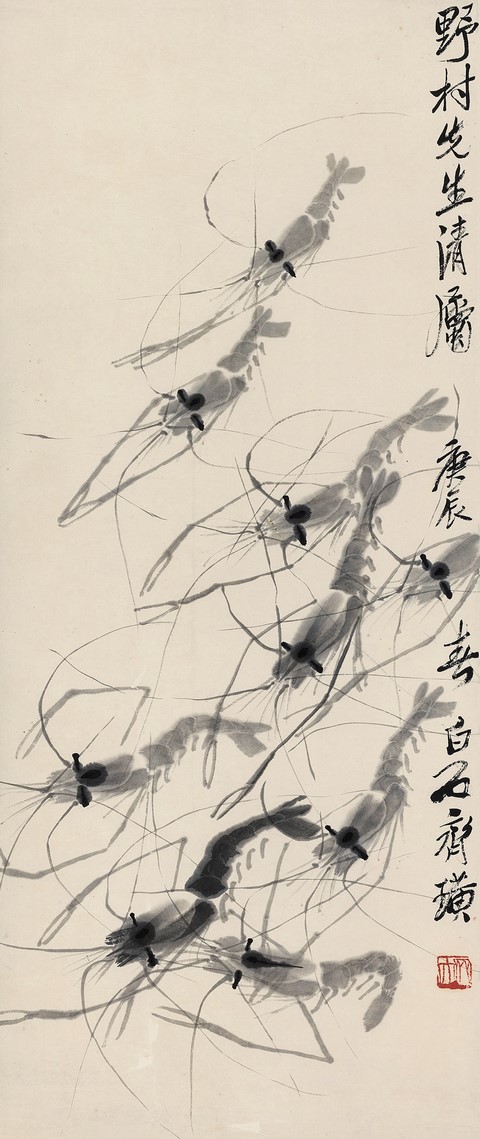 野村先生清屬 庚辰春 白石齊璜